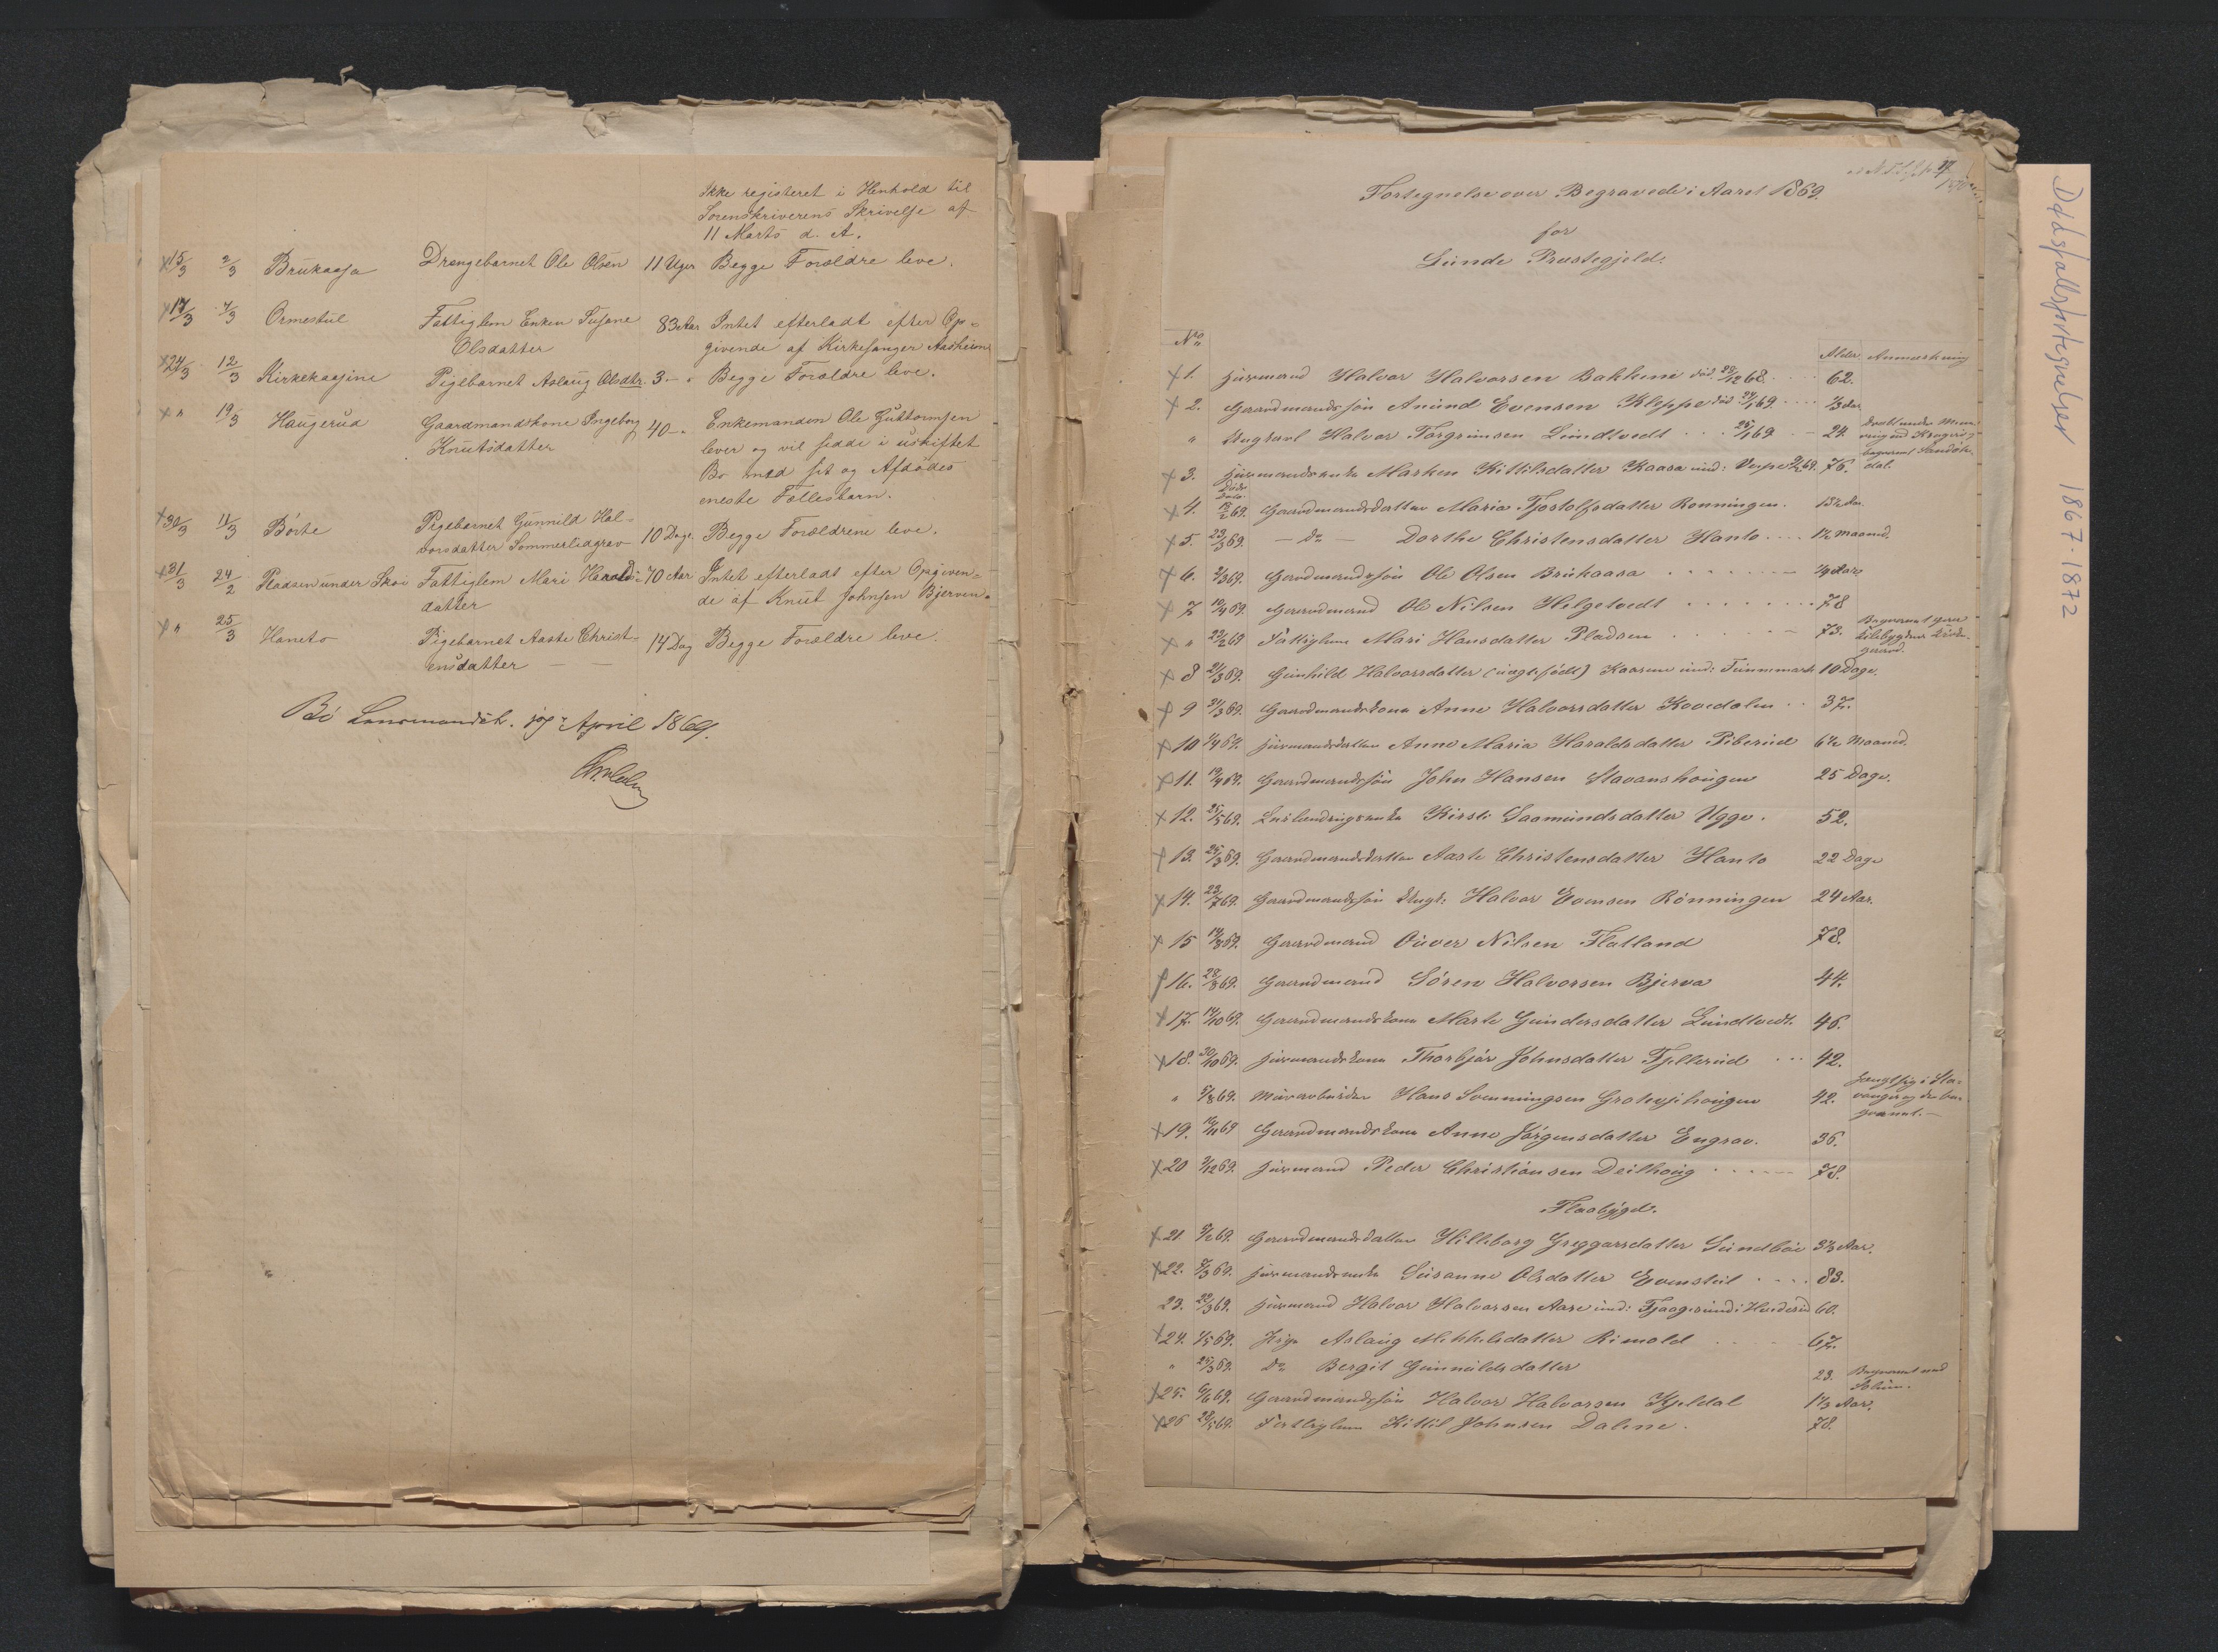 Ikke registeret i Henhold til
Sorenskriverens Skrivelse af
11 Marts d. A.
15/3 2/3 Brukaasa Drengebarnet Ole Olsen 11 Uger Begge Forældre leve.
17/3 7/3 Ormestul Fattiglem Enken Susane 83 Aar Intet efterladt efter Op-
Olsdatter givende af Kirkesanger Aasheim
24/3 12/3 Kirkekaasine Pigebarnet Aslaug Olsdtr. 3 - " Begge Forældre leve.
" 19/3 Haugerud Gaardmandskone Ingeborg 40 - " Enkemanden Ole Guttormsen
Knutsdatter lever og vil sidde i uskiftet
Bo med sit og Afdödes
eneste Fællesbarn.
30/3 11/3 Börte Pigebarnet Gunnild Hal-
vorsdatter Sommerlidgrav 10 Dage. Begge Forældrene leve.
31/3 24/2 Pladsen under Skoi Fattiglem Mari Harolds- 70 Aar Intet efterladt efter Opgiven-
datter de af Knut Johnsen Bjerven.
" 25/3 Haneto Pigebarnet Aaste Christ- 14 Dag Begge Forældre leve.
ensdatter
Bö Lensmandsb. April 1869.
Fortegnelse over Begravede i Aaret 1869.
for
Lunde Præstegjeld.
No
Alder. Anmærkning
1. Huusmand Halvor Halvorsen Bakkene död 28/12 68. 62.
2. Gaardmandssön Anund Evensen Kleppe död 69. 1/3 Aar
" Ungkarl Halvor Torgrimsen Lundtvedt 69 24.
3. Huusmandsenke Marken Kittilsdatter Kaasa 69. 76.
Döds
Dato.
4. 69. Gaardmandsdatter Maria Tjostolfsdatter Ronningen. 13½ Aar
5. 23/3 69. - Do - Dorthe Christensdatter Hanto 1½ Maaned.
6. 2/3 69. Gaardmandssön Ole Olsen Brukaasa Aar
7 10/4 69. Gaardmand Ole Nilsen Helgetvedt 78
" 24/2 69 Fattiglem Mari Hansdatter Pladsen 73.
8 21/3 69. Gunhild Halvorsdatter (uægte födt) Kaasene 10 Dage.
9 31/3 69. Gaardmandskone Anne Halvorsdatter Kovedalen 37.
10 1/4 69. Huusmandsdatter Anne Maria Haraldsdatter Piberud 6½ Maaned.
11. 19/4 69. Gaardmandssön John Hansen Stavanshougen 25 Dage.
12. 25/5 69. Enke Kirsti Saamundsdatter Ugge. 52.
13. 25/3 69. Gaardmandsdatter Aaste Christensdatter Hanto 22 Dage
14. 23/7 69. Gaardmandssön Ungk: Halvor Evensen Rönningen 24 Aar.
15 14/8 69. Gaardmand Ouver Nilsen Flatland 78.
16. 28/8 69. Gaardmand Sören Halvorsen Bjerva 44.
17. 14/10 69. Gaardmandskone Marte Gundersdatter Lundtvedt. 46.
18. 30/10 69. Huusmandskone Thorbjör Johnsdatter Fjellerud 42.
" 5/8 69. Murarbeider Hans Svenningsen Grotesihougen 42.
19. 19/11 69 Gaardmandskone Anne Jörgensdatter Engrav. 36.
20 69. Huusmand Peder Christiansen Deilhoug 78.
Flaabygd.
21 69. Gaardmandsdatter Hilleborg Greggarsdatter Sundböe 3½ Aar.
22. 7/3 69. Huusmandsenke Susanne Olsdatter Evenstul 83.
23. 22/3 69. Huusmand Halvor Halvorsen Aase 60.
24. 1/5 69. Pige Aslaug Mikkelsdatter Rimold 67.
" 25/3 69. Do Bergit Gunnuldsdatter 23. Begravet ved
Solum.
25. 6/6 69. Gaardmandssön Halvor Halvorsen Kjeldal 1 1/3 Aar.
26 69. Fattiglem Kittil Johnsen Dalene. 78.
Dødsfallsfortegnelser 1867-1872